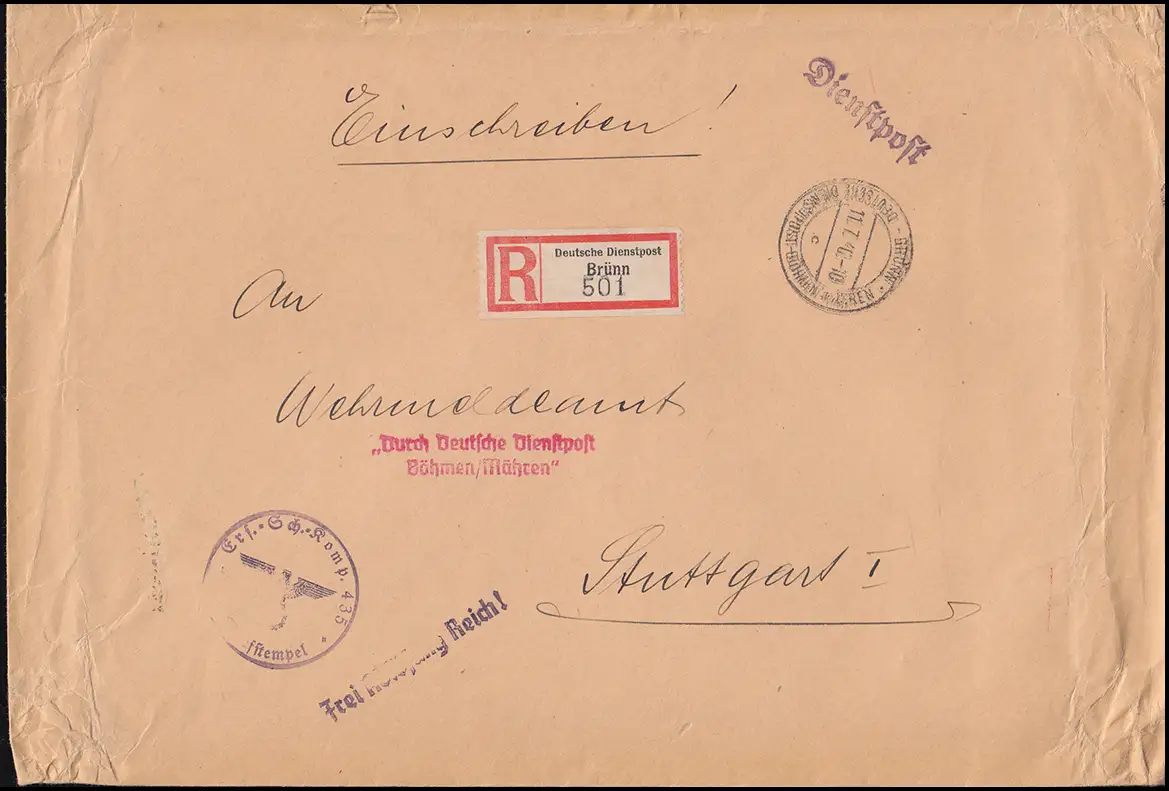 Einschreiben!
Dienstpost
R
Deutsche Dienstpost
Brünn
501
DEUTSCHE DIENSTPOST BÖHMEN MÄHREN · BRÜNN
11.7.40-10
c
An
Wehrmeldeamt
„Durch Deutsche Dienstpost
Böhmen/Mähren“
Stuttgart I
Ers.-Sch.-Komp. 435
fstempel
Frei Reich!